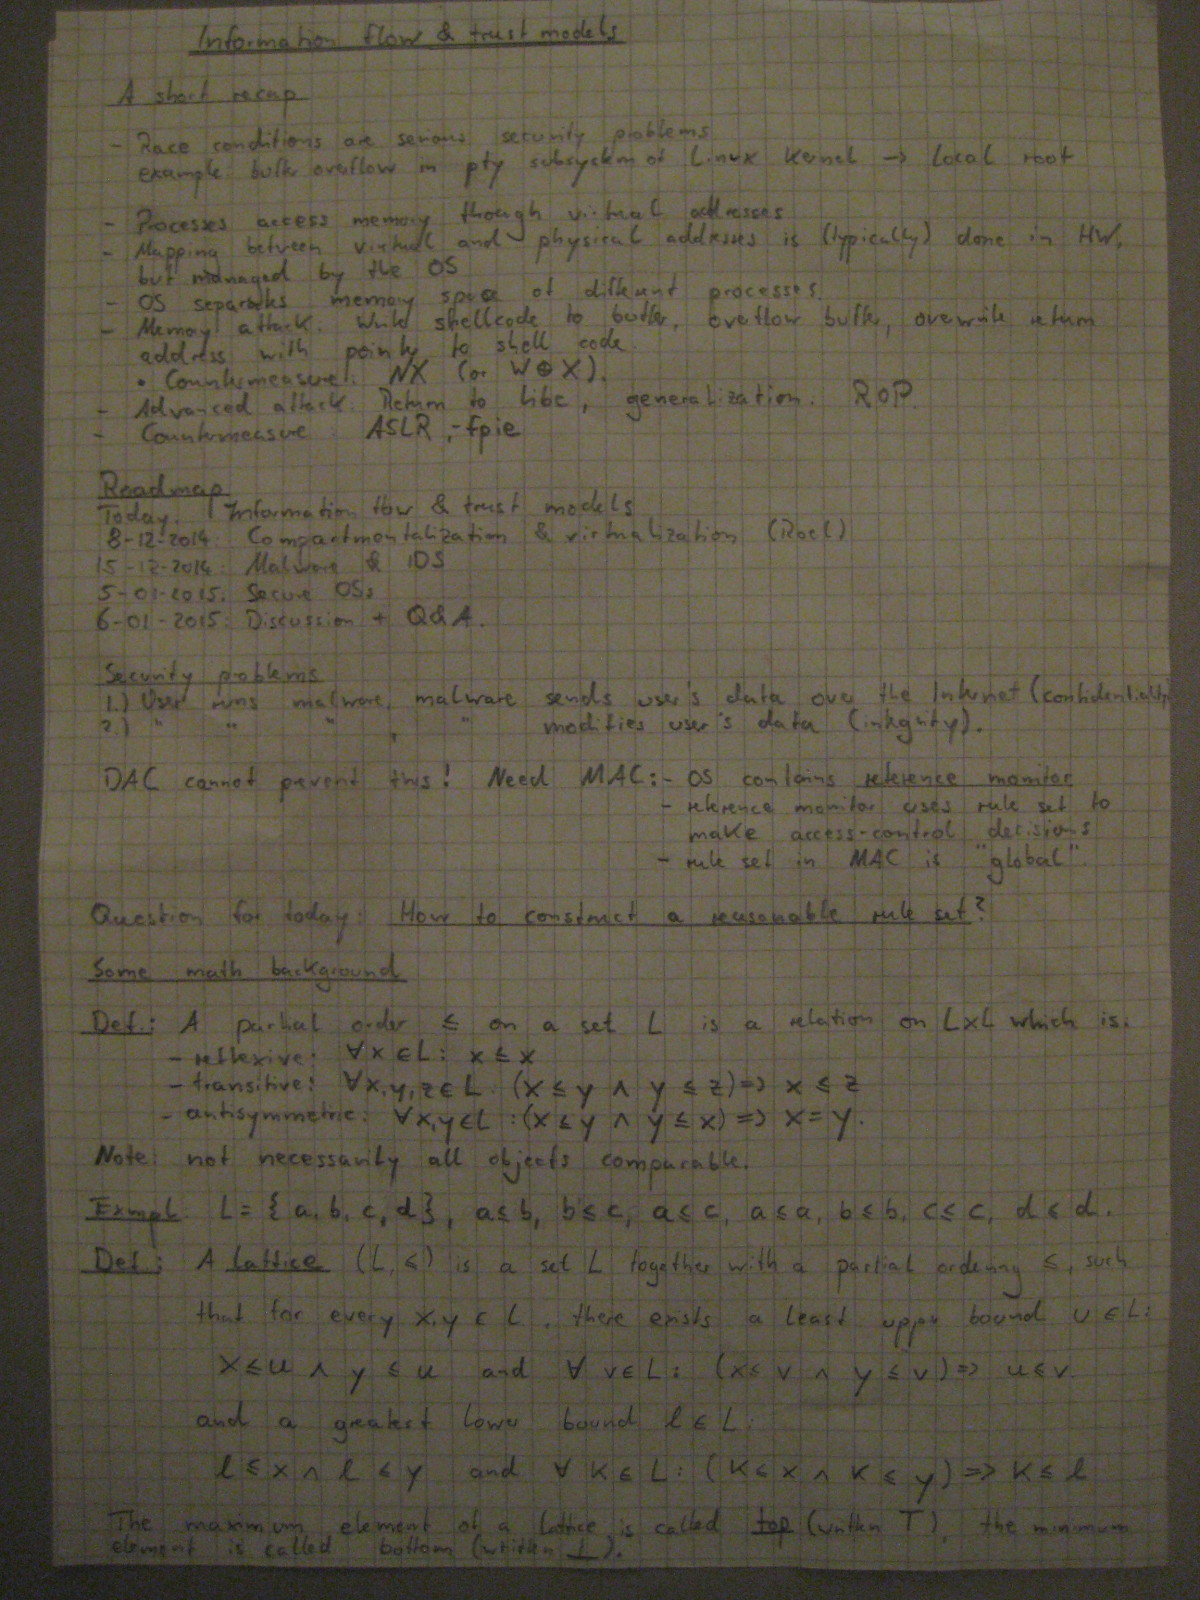 Information flow & trust models
A short recap
- Race conditions are serious security problems
example: buffer overflow in pty subsystem of Linux kernel → local root
- Processes access memory though virtual addresses
- Mapping between virtual and physical addresses is (typically) done in HW,
but managed by the OS
- OS separates memory space of different processes
- Memory attack: Write shellcode to buffer, overflow buffer, overwrite return
address with pointer to shell code.
• Countermeasure: NX (or W⊕X).
- Advanced attack: Return to libc, generalization: ROP.
- Countermeasure: ASLR, -fpie
Roadmap
Today: Information flow & trust models
8-12-2014: Compartmentalization & virtualization (Roel)
15-12-2014: Malware & IDS
5-01-2015: Secure OSs
6-01-2015: Discussion + Q&A.
Security problems
1.) User runs malware, malware sends user's data over the Internet (confidentiality)
2.) " " " , " modifies user's data (integrity).
DAC cannot prevent this! Need MAC: - OS contains reference monitor
- reference monitor uses rule set to
make access-control decisions
- rule set in MAC is "global".
Question for today: How to construct a reasonable rule set?
Some math background
Def.: A partial order ≤ on a set L is a relation on L×L which is:
- reflexive: ∀x∈L: x ≤ x
- transitive: ∀x,y,z∈L: (x ≤ y ∧ y ≤ z) => x ≤ z
- antisymmetric: ∀x,y∈L: (x ≤ y ∧ y ≤ x) => x = y.
Note: not necessarily all objects comparable.
Exmpl: L = {a, b, c, d}, a≤b, b≤c, a≤c, a≤a, b≤b, c≤c, d≤d.
Def.: A lattice (L, ≤) is a set L together with a partial ordering ≤, such
that for every x,y ∈ L, there exists a least upper bound u ∈ L:
x≤u ∧ y ≤ u and ∀ v∈L: (x≤ v ∧ y ≤ v) => u≤v.
and a greatest lower bound l ∈ L:
l ≤ x ∧ l ≤ y and ∀ k ∈ L: (k ≤ x ∧ k ≤ y) => k ≤ l
The maximum element of a lattice is called top (written ⊤), the minimum
element is called bottom (written ⊥).